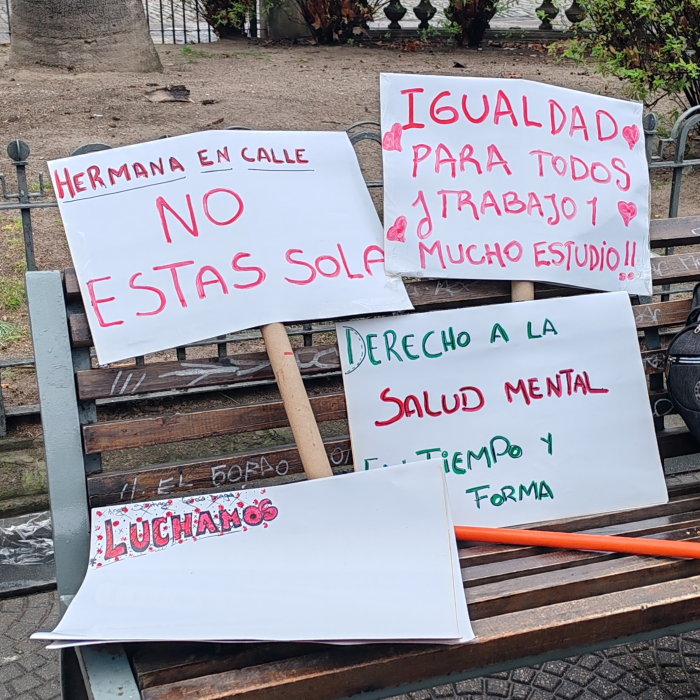 HERMANA EN CALLE
NO
ESTAS SOLA
IGUALDAD
PARA TODOS
¡TRABAJO Y
MUCHO ESTUDIO!!
DERECHO A LA
SALUD MENTAL
EN TIEMPO Y
FORMA
LUCHAMOS
EL